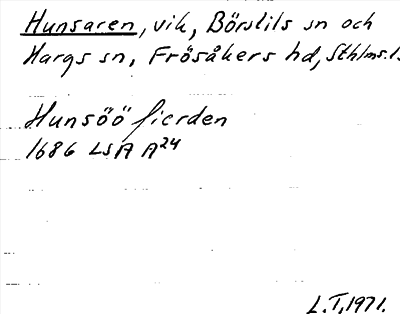 Hunsaren, vik, Börstils sn och
Hargs sn, Frösåkers hd, Sthlms.l.
Hunsöö fierden
1686 LSA A24
L.T, 1971.